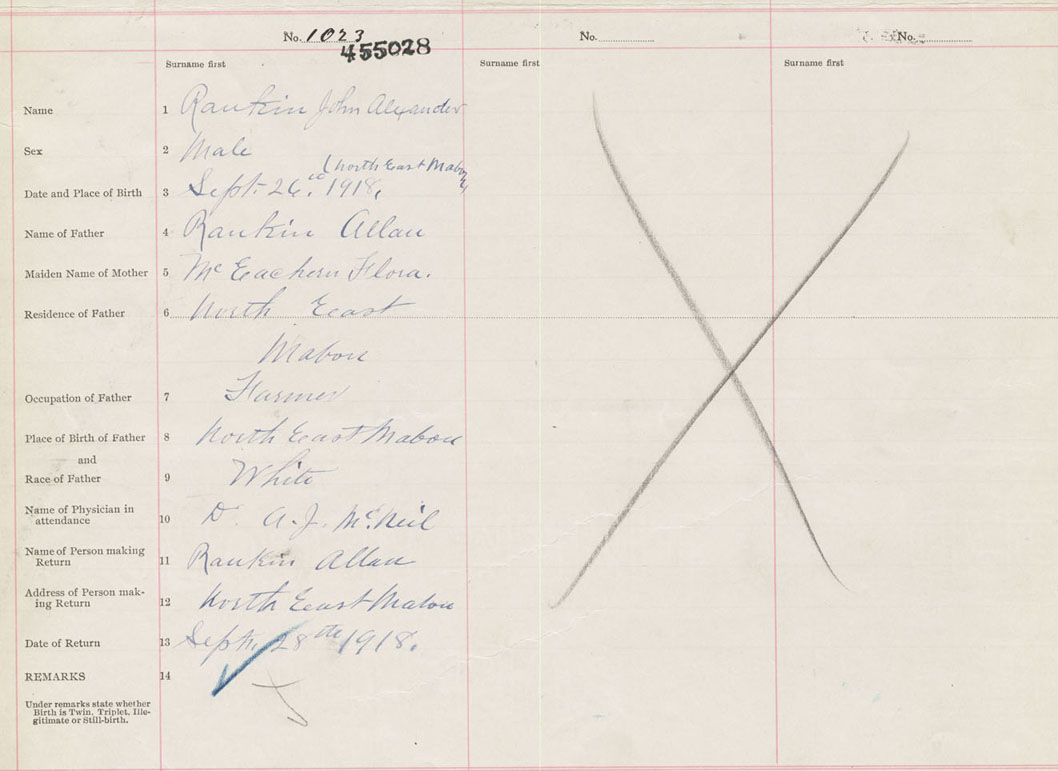 No. 1023 No. No.
455028
Surname first Surname first Surname first
Name 1 Rankin John Alexander
Sex 2 Male
(North East Mabou
Date and Place of Birth 3 Sept. 26. 1918.
Name of Father 4 Rankin Allan
Maiden Name of Mother 5 McEachern Flora.
Residence of Father 6 North East
Mabou
Occupation of Father 7 Farmer
Place of Birth of Father 8 North East Mabou
and
Race of Father 9 White
Name of Physician in
attendance 10 Dr. A. J. McNeil
Name of Person making
Return 11 Rankin Allan
Address of Person mak-
ing Return 12 North East Mabou
Date of Return 13 Sept. 28th 1918.
REMARKS 14
Under remarks state whether
Birth is Twin, Triplet, Ille-
gitimate or Still-birth.